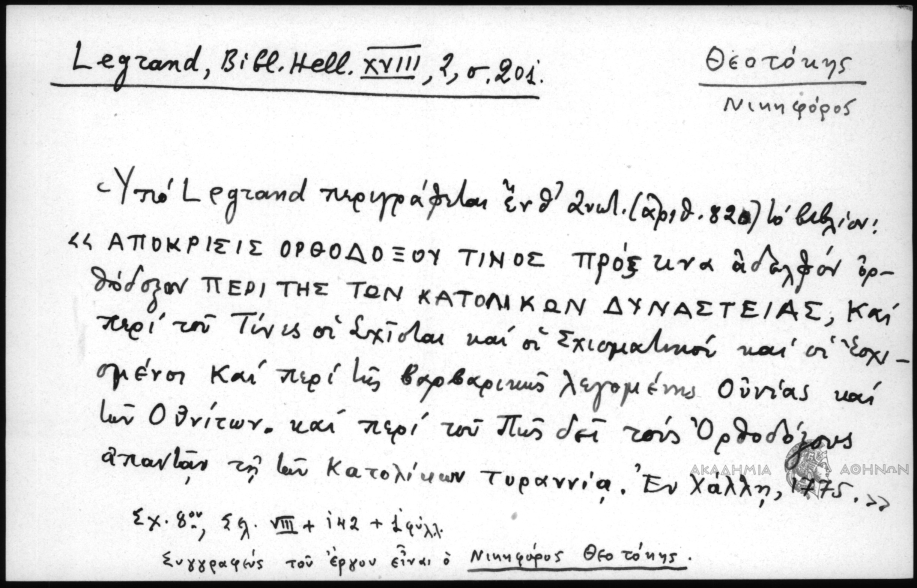 Legrand, Bibl. Hell. XVIII, 2, σ. 201.
Θεοτόκης
Νικηφόρος
Ὑπό Legrand περιγράφεται ἐνθ' ἀνωτ. (ἀριθ. 820) τό βιβλίον:
«ΑΠΟΚΡΙΣΙΣ ΟΡΘΟΔΟΞΟΥ ΤΙΝΟΣ πρός τινα ἀδελφόν ὀρ-
θόδοξον ΠΕΡΙ ΤΗΣ ΤΩΝ ΚΑΤΟΛΙΚΩΝ ΔΥΝΑΣΤΕΙΑΣ, Καί
περί τοῦ Τίνες οἱ Σχῖσται καί οἱ Σχισματικοί καί οἱ Ἐσχι-
σμένοι Καί περί τῆς βαρβαρικῆς λεγομένης Οὐνίας καί
τῶν Οὐνίτων. καί περί τοῦ Πῶς δεῖ τούς Ὀρθοδόξους
ἀπαντᾷν τῇ τῶν Κατολίκων τυραννίᾳ. Ἐν Χάλλῃ, 1775.»
ΑΚΑΔΗΜΙΑ ΑΘΗΝΩΝ
Σχ. 8ον, Σελ. VIII + 142 + 1 φύλλ.
Συγγραφεύς τοῦ ἔργου εἶναι ὁ Νικηφόρος Θεοτόκης.